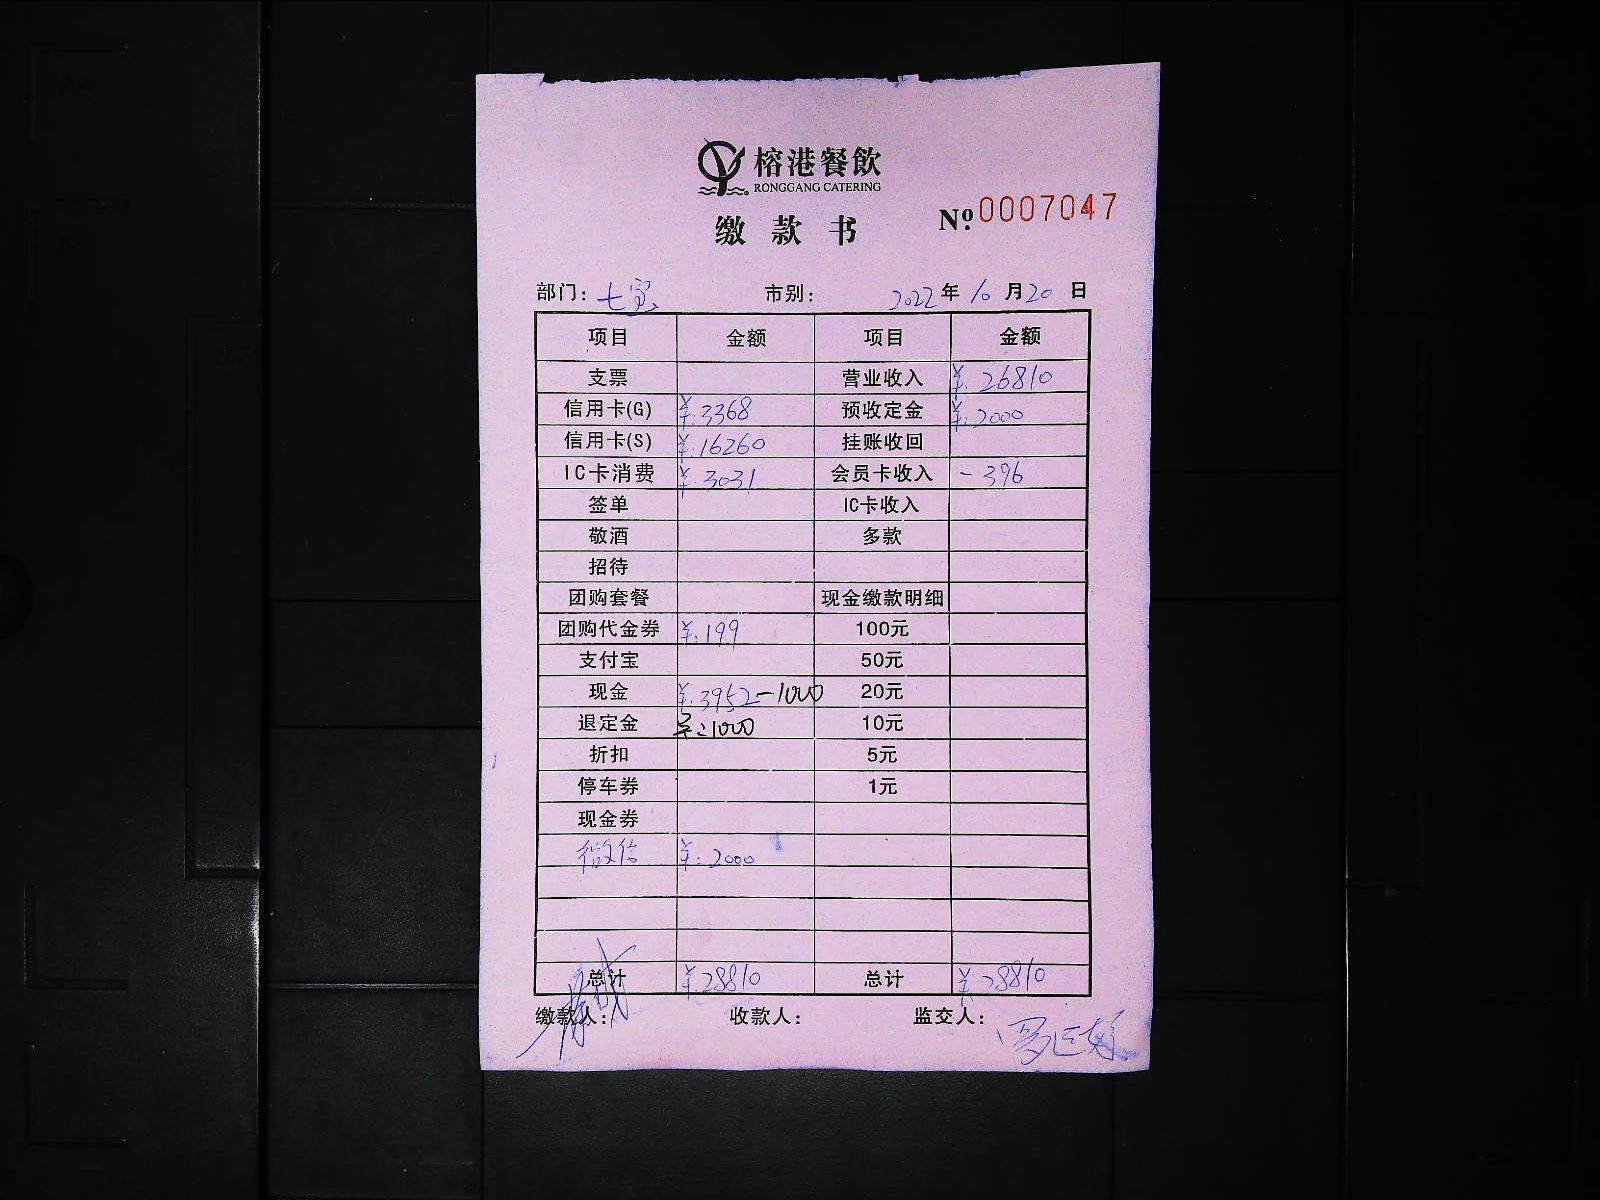 榕港餐飲
RONGGANG CATERING
缴款书 Nº.0007047
部门：七宝 市别： 2022年10月20日
项目 金额 项目 金额
支票 营业收入 ¥:26810
信用卡(G) ¥:3368 预收定金 ¥:2000
信用卡(S) ¥:16260 挂账收回
IC卡消费 ¥:3031 会员卡收入 -396
签单 IC卡收入
敬酒 多款
招待
团购套餐 现金缴款明细
团购代金券 ¥:199 100元
支付宝 50元
现金 ¥:3952-1000 20元
退定金 ¥:1000 10元
折扣 5元
停车券 1元
现金券
微信 ¥:2000
总计 ¥28810 总计 ¥28810
缴款人： 收款人： 监交人：